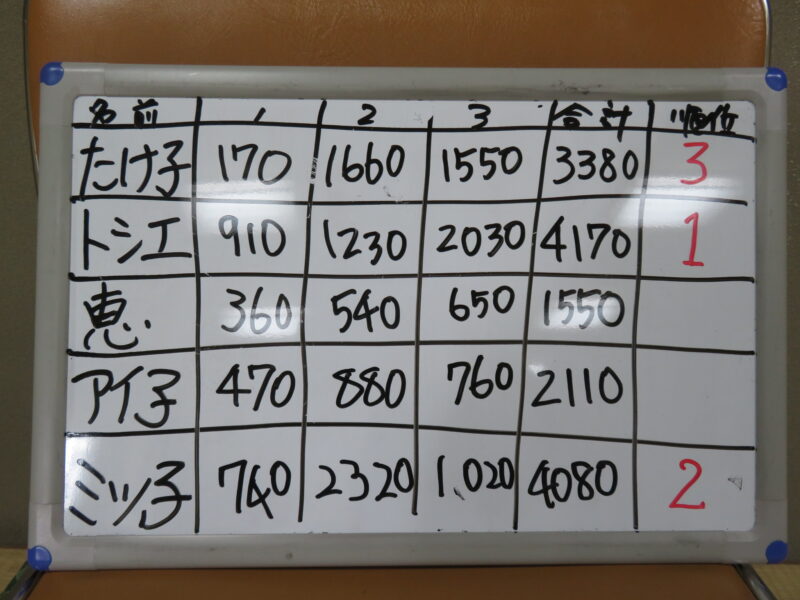 名前 1 2 3 合計 順位
たけ子 170 1660 1550 3380 3
トシエ 910 1230 2030 4170 1
恵 360 540 650 1550
アイ子 470 880 760 2110
ミツ子 740 2320 1020 4080 2